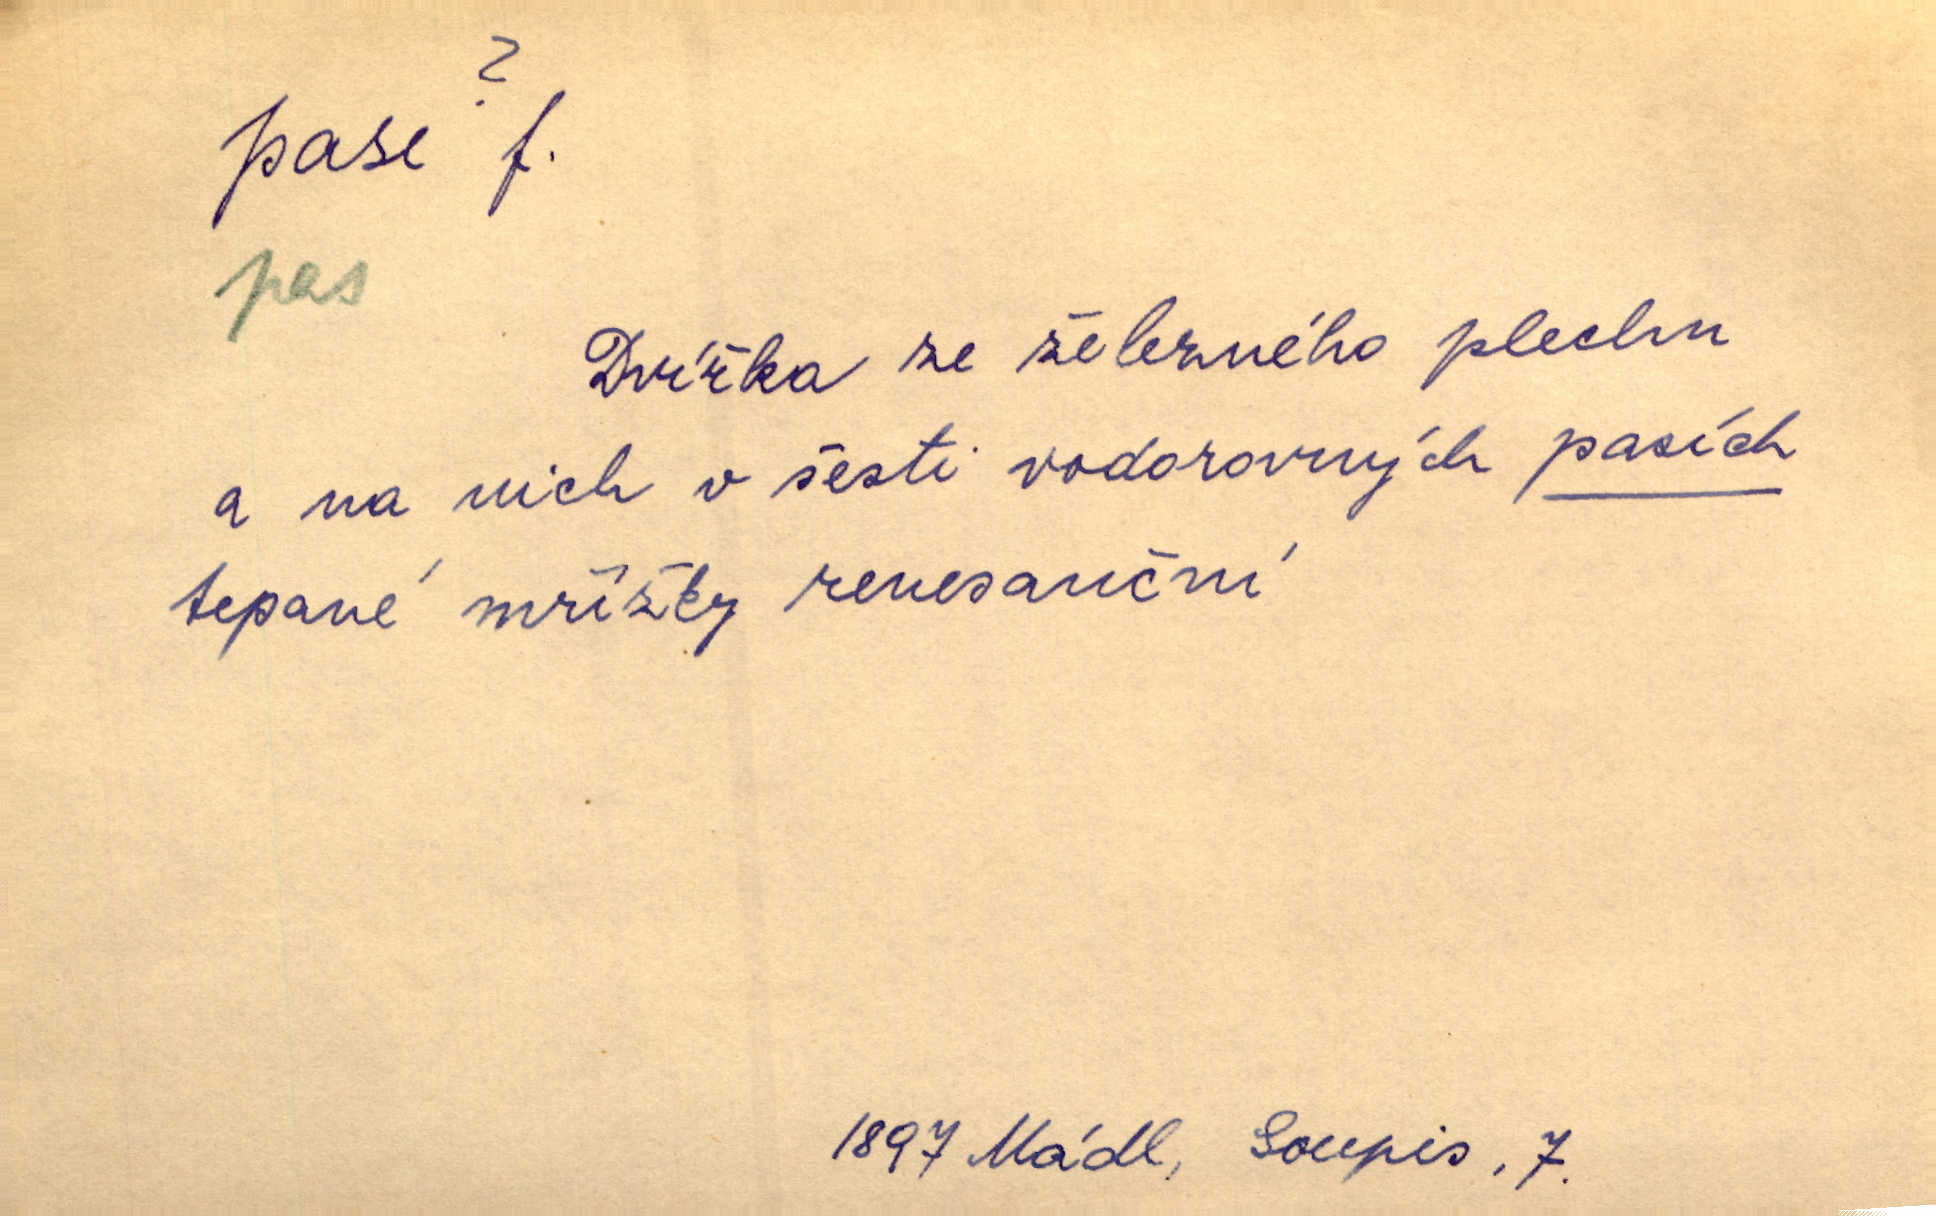 ?
pase f.
pas
Dvířka ze železného plechu
a na nich v šesti vodorovných pasích
tepané mřížky renesanční
1897 Mádl, Soupis, 7.